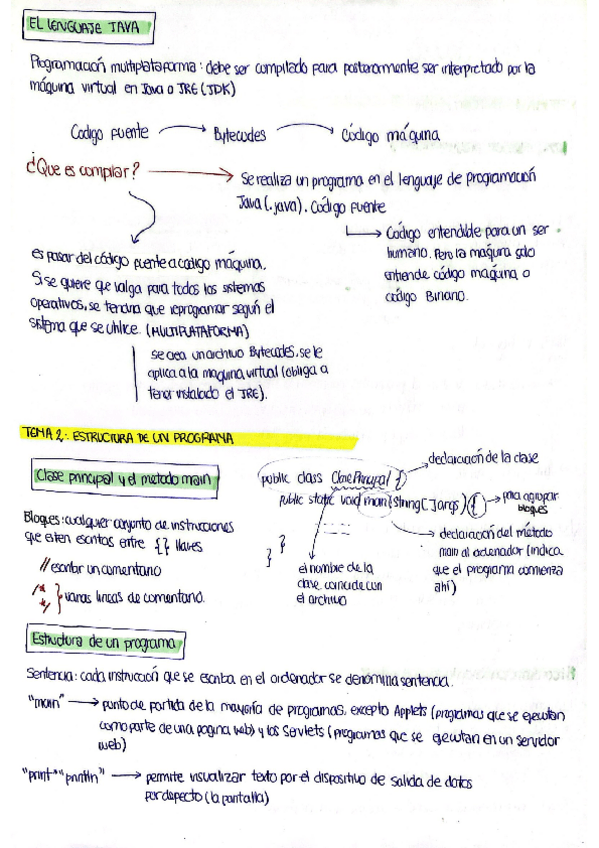 EL LENGUAJE JAVA
Programación multiplataforma: debe ser compilado para posteriormente ser interpretado por la
máquina virtual en Java o JRE (JDK)
Codigo fuente → Bytecodes → Código máquina
¿Que es compilar? → Se realiza un programa en el lenguaje de programación
Java (.java). Código fuente
Código entendible para un ser
humano. Pero la máquina solo
entiende código máquina o
código Binario.
es pasar del código fuente a codigo máquina.
Si se quiere que valga para todos los sistemas
operativos, se tendría que reprogramar según el
sistema que se utilice. (MULTIPLATAFORMA)
se crea un archivo Bytecodes, se le
aplica a la maquina virtual (obliga a
tener instalado el JRE).
TEMA 2: ESTRUCTURA DE UN PROGRAMA
Clase principal y el metodo main
public class ClasePrincipal {
declaración de la clase
public static void main (String [] args) {
para agrupar
bloques
}
}
el nombre de la
clase coincide con
el archivo
declaración del método
main al ordenador (indica
que el programa comienza
ahí)
Bloques: cualquier conjunto de instrucciones
que esten escritas entre { } llaves
// escribir un comentario
/* */ } varias lineas de comentario.
Estructura de un programa
Sentencia: cada instrucción que se escriba en el ordenador se denomina sentencia.
"main" → punto de partida de la mayoría de programas, excepto Applets (programas que se ejecutan
como parte de una pagina web) y los Servlets (programas que se ejecutan en un servidor
web)
"print" "println" → permite visualizar texto por el dispositivo de salida de datos
por defecto (la pantalla)